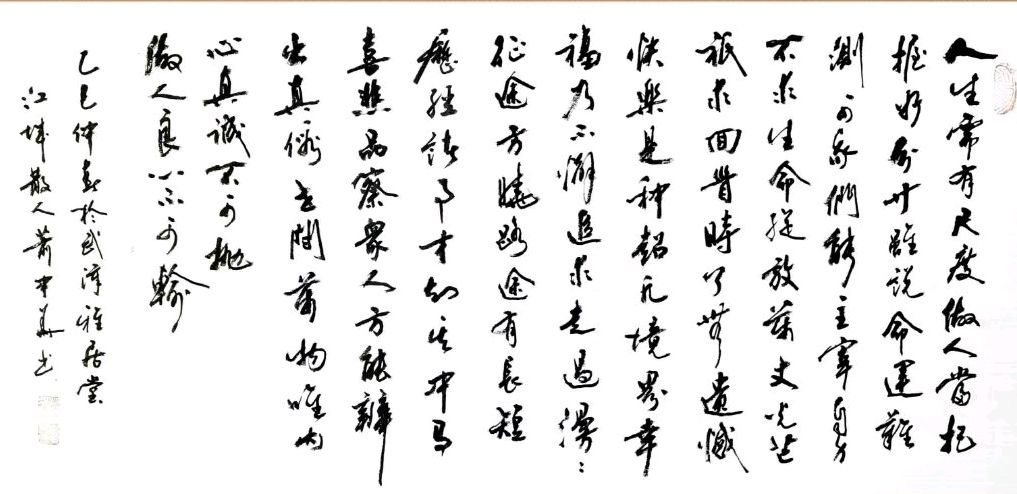 人生需有尺度做人當把
握好分寸雖說命運難
測可我們能主宰自身
不求生命綻放萬丈光芒
祇求回首時了無遺憾
快樂是种超凡境界幸
福乃不懈追求走過漫〻
征途方曉路途有長短
歷經諸事才知其中
喜悲品察眾人方能辨
出真偽世間萬物唯内
心真誠不可拋
做人良心不可輸
乙巳仲春於武漢雅居堂
江城散人蕭中華书